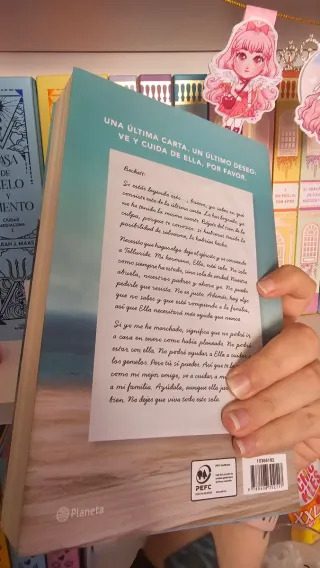 UNA ÚLTIMA CARTA. UN ÚLTIMO DESEO:
VE Y CUIDA DE ELLA, POR FAVOR.
Beckett:
Si estás leyendo esto…, bueno, ya sabes en qué
consiste esto de la última carta. Tú has llegado
no he tenido la misma suerte. Líbrate del
culpa, porque te conozco: si hubieras tenido la
posibilidad de salvarme, lo habrías hecho.
Necesito que hagas algo: deja el ejército y ve corriendo
a Telluride. Mi hermana, Ella, está sola. No sola
como siempre ha estado, sino sola de verdad. Nuestra
abuela, nuestros padres y ahora yo. No puedo
pedirle que resista. No es justo. Además, hay algo
que no sabes y que está rompiendo a la familia,
así que Ella necesitará más ayuda que nunca.
Si yo me he marchado, significa que no podré ir
a casa en enero como había planeado. No podré
estar con ella. No podré ayudar a Ella a cuidar
los gemelos. Pero tú sí puedes. Así que te
como mi mejor amigo, ve a cuidar a mi
a mi familia. Ayúdala, aunque ella
bien. No dejes que viva todo esto sola.
Planeta
PEFC
10366192
CIUDAD
MEDIALUNA
SARAH J. MAAS
XXL